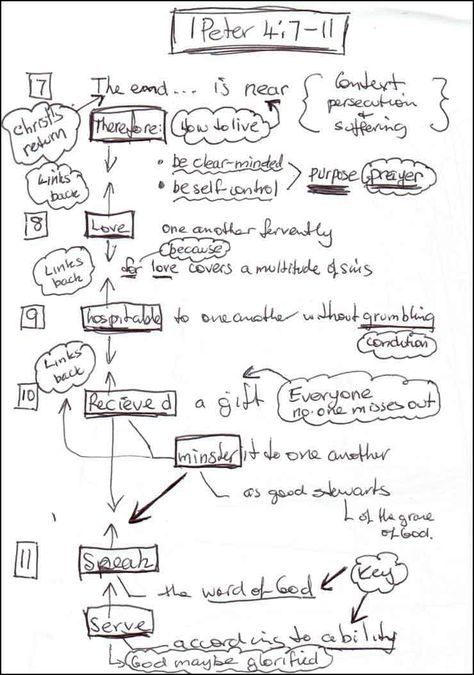 1 Peter 4:7-11
7 The end... is near
Context
persecution
&
suffering
christs
return
Therefore: How to live
• be clear-minded
• be self control
purpose prayer
Links
back
8 Love one another fervently
because
for love covers a multitude of sins
Links
back
9 hospitable to one another without grumbling
condition
Links
back
10 Recieved a gift
Everyone
no one misses out
minster it to one another
as good stewarts
of the grace
of God.
11 Speak
the word of God
Key
Serve
according to ability
God maybe glorified